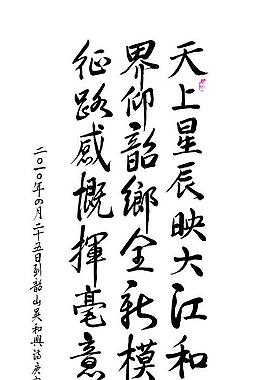 天上星辰映大江和
界仰韶鄉全新模
征路感慨揮毫意
二〇一〇年四月二十五日到韶山吴和興詩庚寅